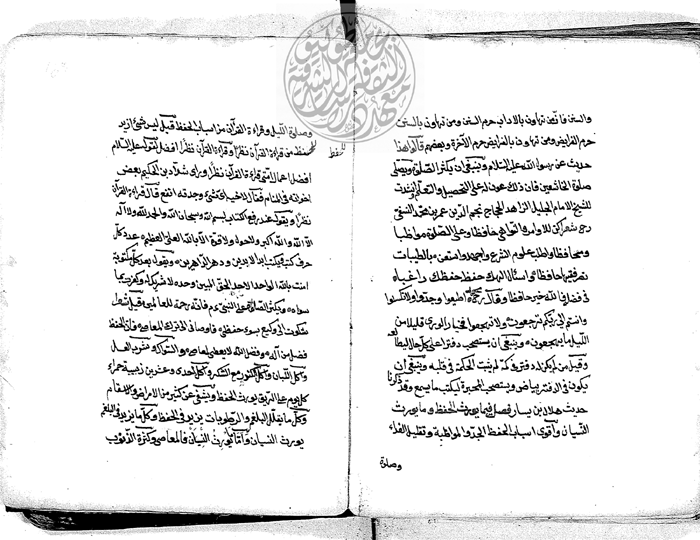 والسنن فانّ من تهاون بالاداب حرم السنن ومن تهاون بالسنن
حرم الفرايض ومن تهاون بالفرايض حرم الآخرة وبعضهم قالوا هذا
حديث عن رسول الله عليه السلام وينبغي ان يكثر الصلوة ويصلي
صلوة الخاشعين فان ذلك عون له على التحصيل والتعلم وانشدت
للشيخ الامام الجليل الزاهد الحجاج نجم الدين عمر بن محمد النسفي
رحـ شعرا كن للاوامر والنواهي حافظا وعلى الصلوة مواظبا
ومحافظا واطلب علوم الشرع واجهد واستعن بالطيبات
تصر فقيها حافظا واسئال الهك حفظ حفظك راغبا
في فضله فالله خير حافظا وقال رحـ اطيعوا وجدوا ولا تكسلوا
وانتم الى ربكم ترجعون ولا تهجعوا فخيار الورى قليلا من
الليل ما يهجعون وينبغي ان يستصحب دفترا على كل حال ليطالعه
وقيل من لم يكن له دفتر في كمه لم يثبت الحكمة في قلبه وينبغي ان
يكون في الدفتر بياض ويستصحب المحبرة ليكتب ما يسمع وقد ذكرنا
حديث هلال بن يسار فصل فيما يورث الحفظ وما يورث
النسيان واقوى اسباب الحفظ الجد والمواظبة وتقليل الغذاء
وصلوة
وصلوة الليل وقراءة القرآن من اسباب الحفظ قيل ليس شئ ازيد
للحفظ من قراءة القرآن نظرا وقراءة القرآن نظرا افضل لقوله عليه السلام
افضل اعمال امتي قراءة القرآن نظرا وراى شداد بن الحكيم بعض
اخوانه في المنام فقال لاخيه اي شئ وجدته انفع قال قراءة القرآن
نظرا ويقول عند رفع الكتاب بسم الله وسبحان الله والحمد لله ولا اله
الا الله والله اكبر ولا حول ولا قوة الا بالله العلي العظيم عدد كل
حرف كتب ويكتب ابد الابدين ودهر الداهرين ويقول بعد كل مكتوبة
امنت بالله الواحد الاحد الحق المبين وحده لا شريك له وكفرت بما
سواه ويكثر الصلوة على النبي عم فانه رحمة للعالمين قيل شعرا
شكوت الى وكيع سوء حفظي فاوصاني الى ترك المعاصي فان الحفظ
فضل من اله وفضل الله لا يعطى لعاصي والسواك وشرب العسل
واكل الكندر مع السكر واكل احدى وعشرين زبيبة حمراء
كل يوم على الريق يورث الحفظ ويشفي عن كثير من الامراض والاسقام
وكل ما يقلل البلغم والرطوبات يزيد في الحفظ وكل ما يزيد في البلغم
يورث النسيان وامّا ما يورث النسيان فالمعاصي وكثرة الذنوب